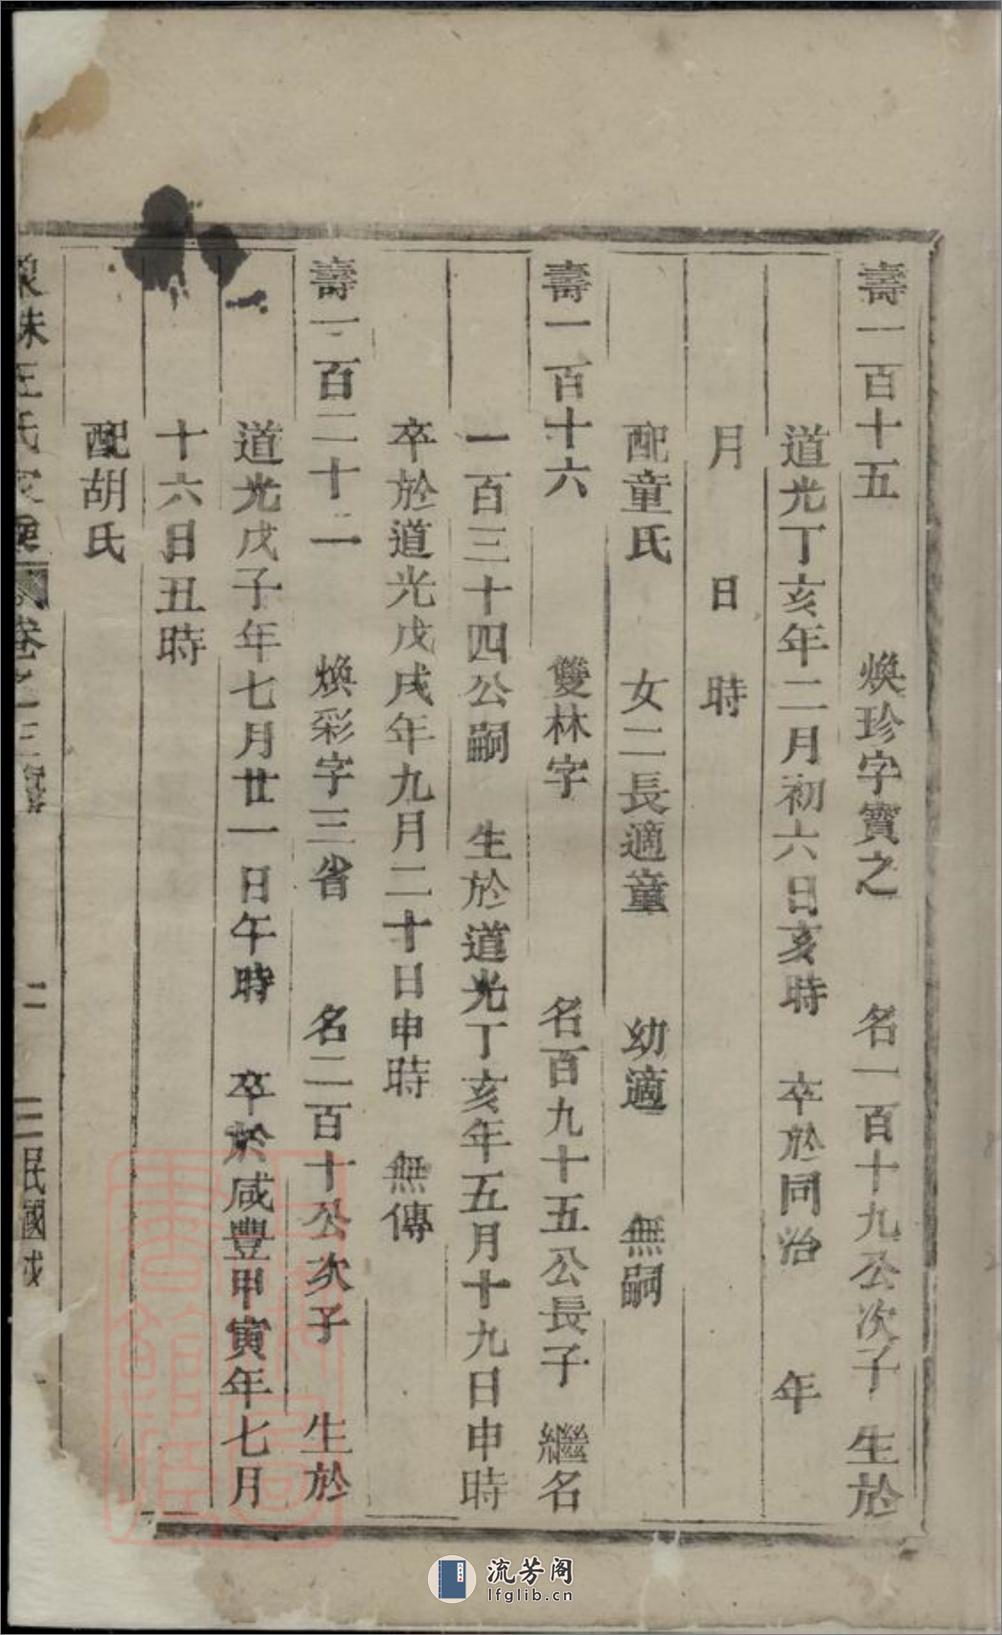 壽一百十五 煥珍字寳之 名一百十九公次子 生於
道光丁亥年二月初六日亥時 卒於同治 年
月 日 時
配童氏 女二長適童 幼適 無嗣
壽一百十六 雙林字 名百九十五公長子 繼名
一百三十四公嗣 生於道光丁亥年五月十九日申時
卒於道光戊戌年九月二十日申時 無傳
壽一百二十二 煥彩字三省 名二百十公次子 生於
道光戊子年七月廿一日午時 卒於咸豐甲寅年七月
十六日丑時
配胡氏
王氏 卷之三 民國
流芳阁
lfglib.cn